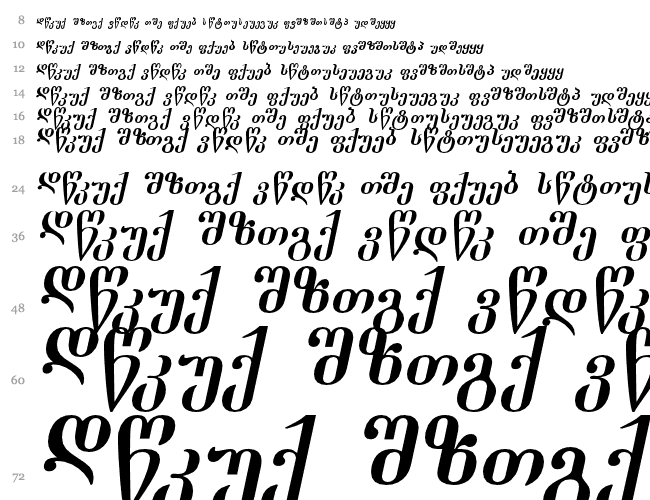 8 ღწკუქ შზთგქ ვწდწკ თშე ფქუებ სწტთუსეუეგუკ ფვშზშთსშტპ უდშეყყყ
10 ღწკუქ შზთგქ ვწდწკ თშე ფქუებ სწტთუსეუეგუკ ფვშზშთსშტპ უდშეყყყ
12 ღწკუქ შზთგქ ვწდწკ თშე ფქუებ სწტთუსეუეგუკ ფვშზშთსშტპ უდშეყყყ
14 ღწკუქ შზთგქ ვწდწკ თშე ფქუებ სწტთუსეუეგუკ ფვშზშთსშტპ უდშეყყ
16 ღწკუქ შზთგქ ვწდწკ თშე ფქუებ სწტთუსეუეგუკ ფვშზშთსშტპ
18 ღწკუქ შზთგქ ვწდწკ თშე ფქუებ სწტთუსეუეგუკ ფვშზ
24 ღწკუქ შზთგქ ვწდწკ თშე ფქუებ სწტთუს
36 ღწკუქ შზთგქ ვწდწკ თშე ფ
48 ღწკუქ შზთგქ ვწდწკ
60 ღწკუქ შზთგქ ვწ
72 ღწკუქ შზთგქ